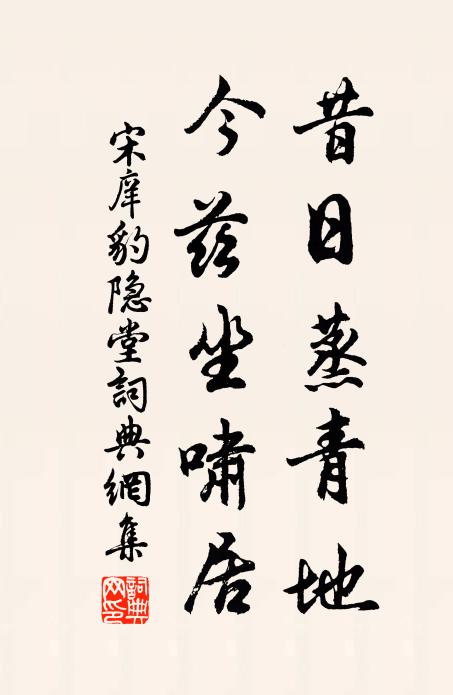 昔日蒸青地
今兹坐啸居
宋庠豹隐堂詞典網集
詞典网印